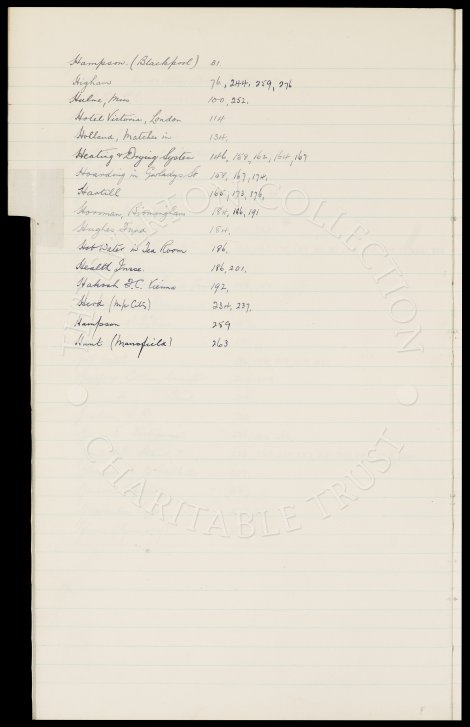 Hampson (Blackpool) 31
Higham 76, 244, 259, 276
Hulme, Miss 100, 252.
Hotel Victoria, London 114
Holland, Matches in 134.
Heating & Drying System 146, 158, 162, 164, 167
Hoarding in Goodadys St 158, 167, 174.
Hartill 165, 173, 176,
Hoorman, Birmingham 184, 186, 191
Hughes, Fred 184.
Hot Water in Tea Room 186.
Health Insce. 186, 201.
Hakoah F.C. Vienna 192.
Herd (M/c City) 234, 237.
Hampson 259
Hunt (Mansfield) 263
THE EVERTON COLLECTION
CHARITABLE TRUST